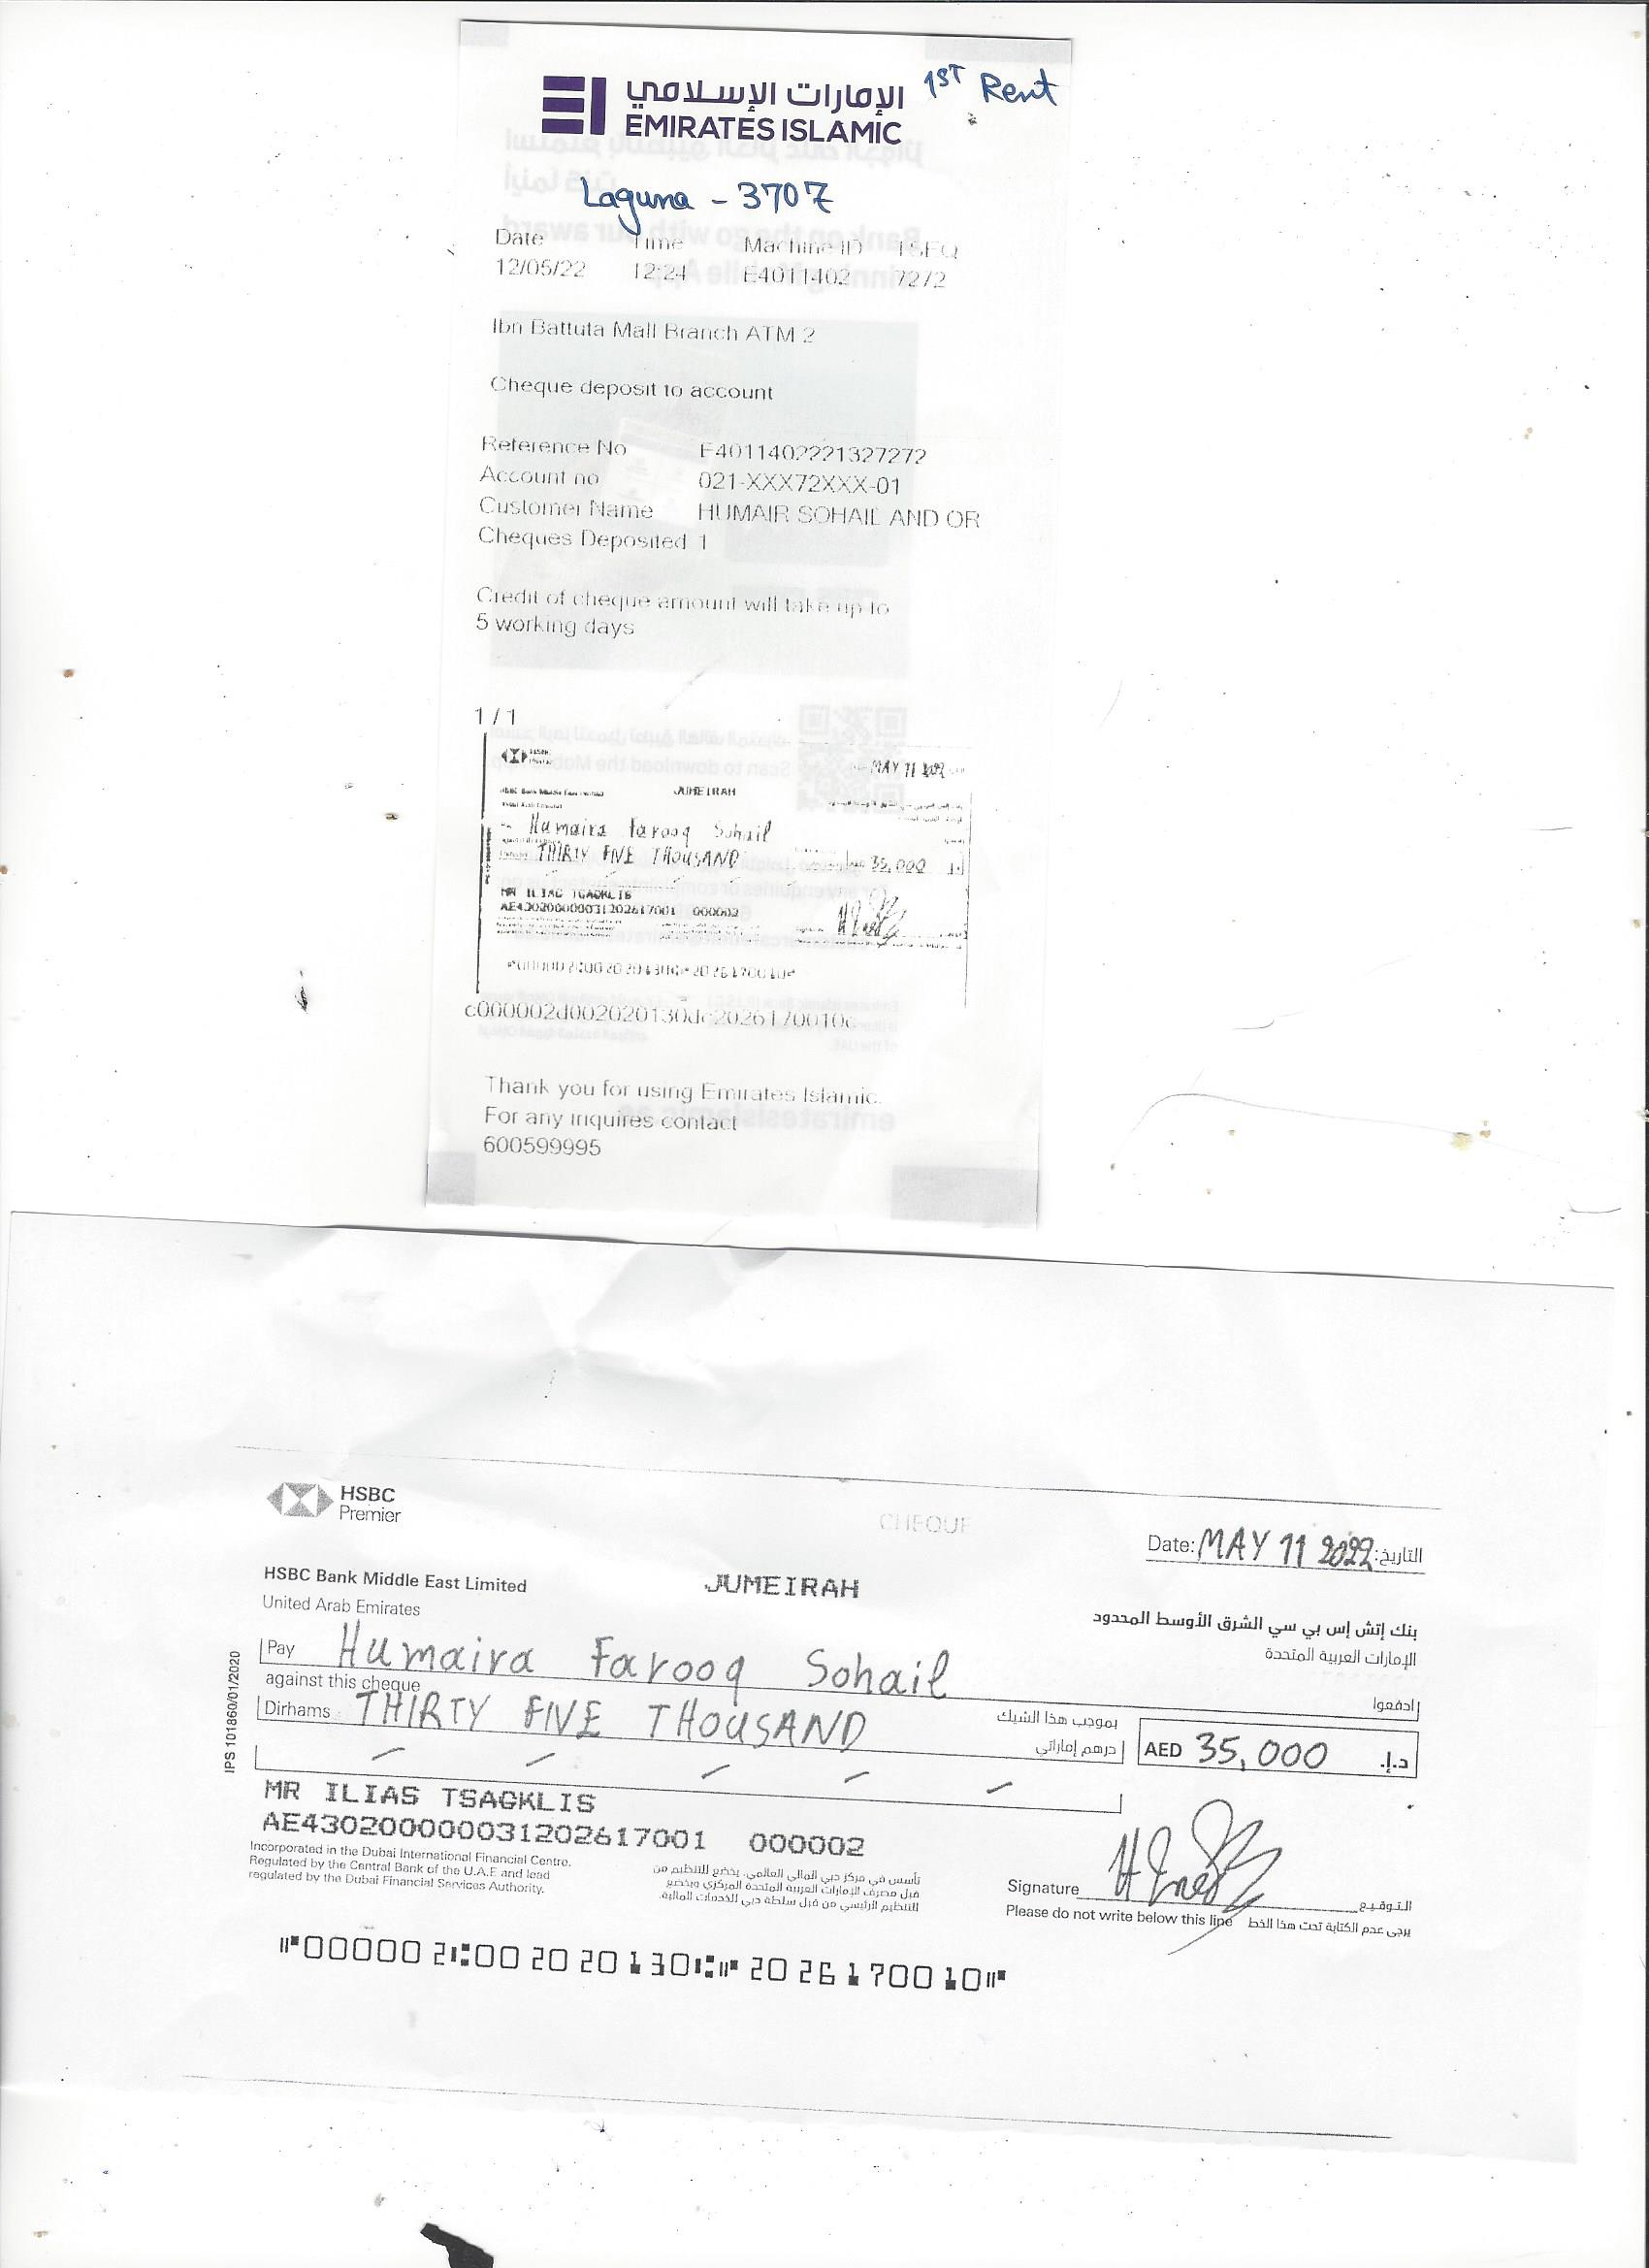 الإمارات الإسلامي
EMIRATES ISLAMIC
1ST Rent
Laguna - 3707
Date Time Machine ID TSEQ
12/05/22 12:24 E4011402 7272
Ibn Battuta Mall Branch ATM 2
Cheque deposit to account
Reference No E4011402221327272
Account no 021-XXX72XXX-01
Customer Name HUMAIR SOHAIL AND OR
Cheques Deposited 1
Credit of cheque amount will take up to
5 working days
1 / 1
MAY 11 2022
JUMEIRAH
Humaira Farooq Sohail
THIRTY FIVE THOUSAND 35,000
MR ILIAS TSAGKLIS
AE430200000031202617001 000002
c000002d002020130dc2026170010c
Thank you for using Emirates Islamic.
For any inquires contact
600599995
HSBC
Premier
CHEQUE
Date: MAY 11 2022 التاريخ:
HSBC Bank Middle East Limited
JUMEIRAH
United Arab Emirates
بنك إتش إس بي سي الشرق الأوسط المحدود
الإمارات العربية المتحدة
Pay Humaira Farooq Sohail
against this cheque
ادفعوا
Dirhams THIRTY FIVE THOUSAND
بموجب هذا الشيك
درهم إماراتي
AED 35,000 د.إ.
IPS 101860/01/2020
MR ILIAS TSAGKLIS
AE430200000031202617001 000002
Incorporated in the Dubai International Financial Centre.
Regulated by the Central Bank of the U.A.E and lead
regulated by the Dubai Financial Services Authority.
تأسس في مركز دبي المالي العالمي. يخضع للتنظيم من
قبل مصرف الإمارات العربية المتحدة المركزي ويخضع
للتنظيم الرئيسي من قبل سلطة دبي للخدمات المالية.
Signature التوقيع
Please do not write below this line يرجى عدم الكتابة تحت هذا الخط
⑈000002⑆002020130⑆⑈2026170010⑈